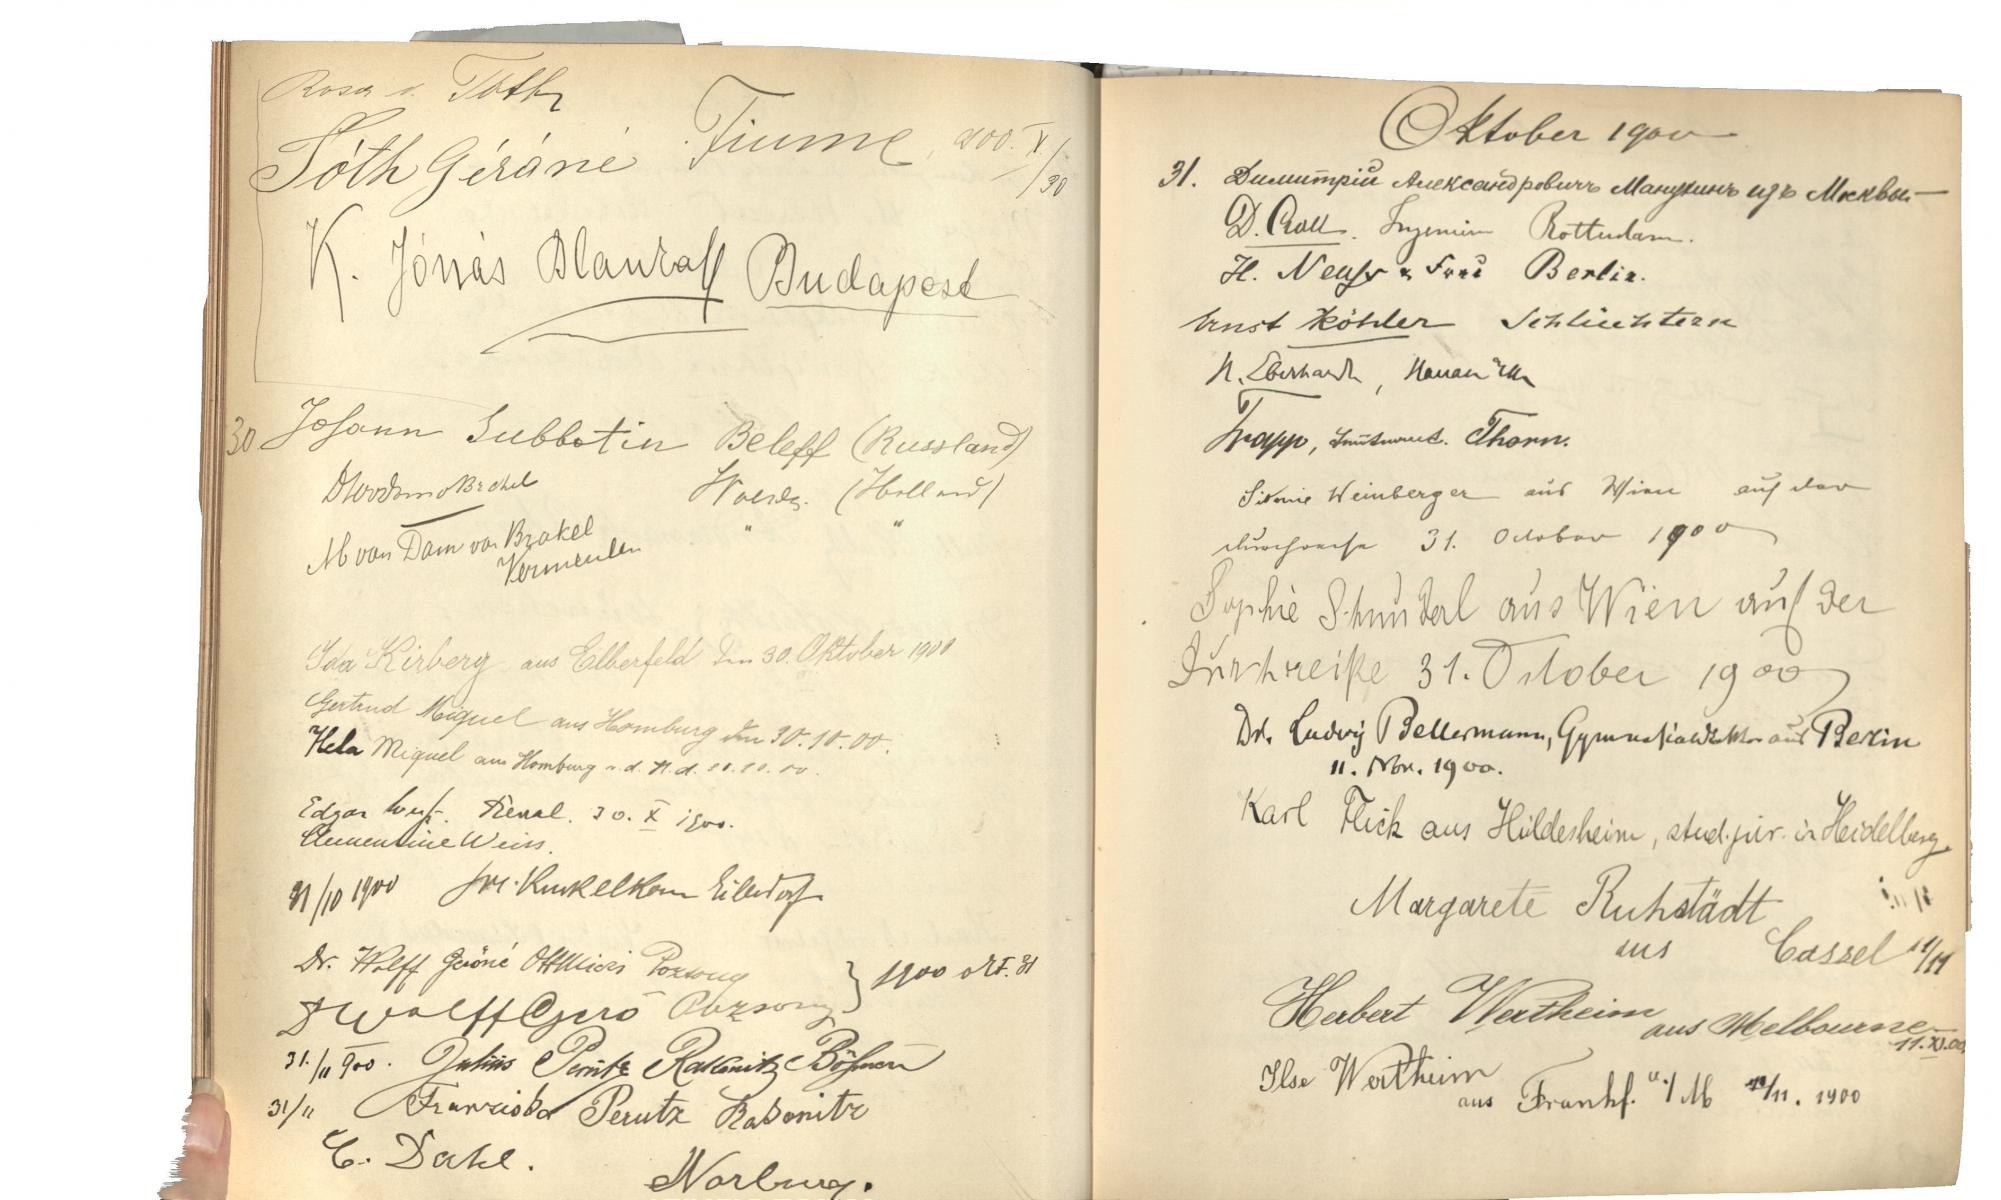 Rosa v. Tóth
Tóth Géráné Fiume, 900. X/30
K. Jónás Budapest
30 Johann Subbotin Beleff (Russland)
(Holland)
M van Dam van Brakel " "
Vermeulen
Ida Kirberg aus Elberfeld den 30. Oktober 1900
Gertrud Miquel aus Homburg den 30.10.00.
Hela Miquel aus Homburg v. d. H. d.
Edgar 30. X 1900.
Clementine Weiss.
31/10 1900
Dr. Wolff Gerőné Pozsony } 1900 okt. 31
Dr Wolff Gerő Pozsony
31/11 900. Julius Perutz Rakonitz Böhmen
31/11 Franziska Perutz Rakonitz
C. Dahl. Norburg.
Oktober 1900
31. Димитрій Александровичъ Манухинъ изъ Москвы
D. Croll. Ingenieur Rotterdam.
H. & Frau Berlin.
Ernst Köhler Schlüchtern
H. Eberhardt, Hanau
Trapp, Thorn.
Sidonie Weinberger aus Wien auf der
Durchreise 31. October 1900
Sophie aus Wien auf der
Durchreiße 31. October 1900
Dr. Ludwig Bellermann, Gymnasialdirektor aus Berlin
11. Nov. 1900.
Karl Flick aus Hildesheim, stud. jur. in Heidelberg
Margarete Ruhstädt
aus Cassel 11/11
Herbert Wertheim
aus Melbourne
11. XI. 00
Ilse Wertheim
aus Frankf. a/M 11/11. 1900